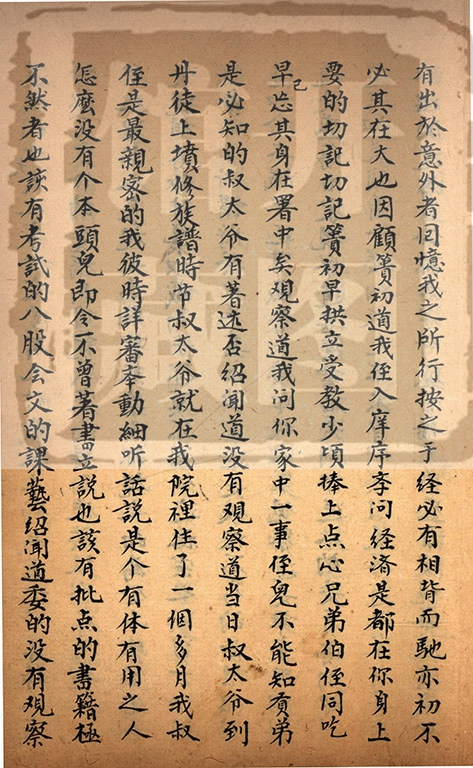 有出於意外者回憶我之所行按之于经必有相背而馳亦初不
必其在大也因顧簣初道我侄入庠序孝问经済是都在你身上
要的切記切記簣初早拱立受教少頃捧上点心兄弟伯侄同吃
早已忘其身在署中矣观察道我问你家中一事侄兒不能知贡弟
是必知的叔太爷有著述否绍闻道没有观察道当日叔太爷到
丹徒上墳修族譜時节叔太爷就在我院裡住了一個多月我叔
侄是最親密的我彼時詳審牵動細听話説是个有体有用之人
怎麽没有个本頭兒即令不曾著書立説也該有批点的書籍極
不然者也該有考試的八股会文的課藝绍闻道委的没有观察